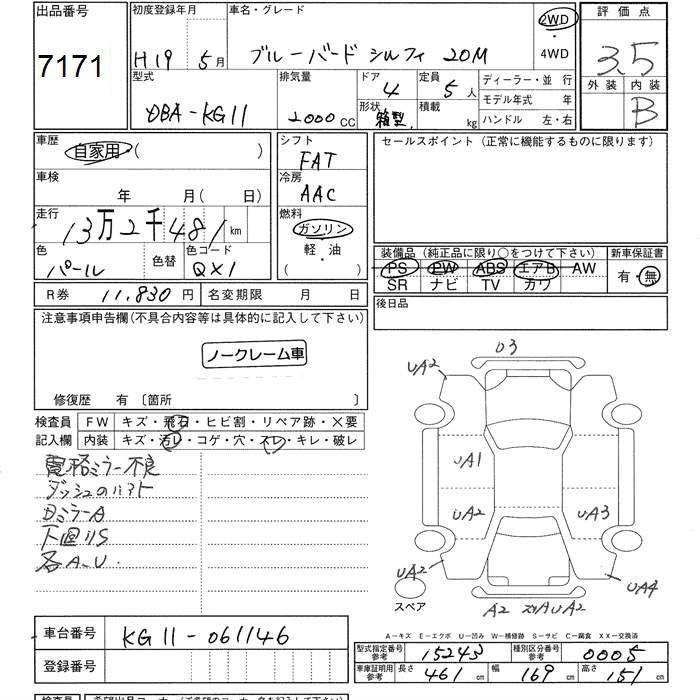 出品番号
7171
初度登録年月
H19 5月
車名・グレード
ブルーバード シルフィ 20M
2WD
・
4WD
評価点
3.5
外装 内装
B
型式
DBA-KG11
排気量
2000 CC
ドア
4
形状
箱型
定員
5人
積載
kg
ディーラー・並 行
モデル年式 年
ハンドル 左・右
車歴
自家用( )
車検
年 月( 日)
走行
13万2千481km
色
パール
色替
色コード
QX1
シフト
FAT
冷房
AAC
燃料
ガソリン
軽・油
( )
セールスポイント(正常に機能するものに限ります)
装備品(純正品に限り○をつけて下さい)
PS PW ABS エアB AW
SR ナビ TV カワ
新車保証書
有・無
R券 11,830円
名変期限 月 日
後日品
注意事項申告欄(不具合内容等は具体的に記入して下さい)
ノークレーム車
修復歴 有〔箇所 〕
検査員
記入欄
FW キズ・飛石・ヒビ割・リペア跡・X要
内装 キズ・汚レ・コゲ・穴・スレ・キレ・破レ
電格ミラー不良
ダッシュのハガト
DミラーA
下回りS
各A-U
03
UA2
UA1
UA2
UA3
UA2
UA4
A2
UA2
スペア
A-キズ E-エクボ U-凹み W-補修跡 S-サビ C-腐食 XX-交換済
車台番号
KG11-061146
登録番号
型式指定番号
参考
15243
種別区分番号
参考
0005
車庫証明用
参考
長さ 461cm
幅 169cm
高さ 151cm